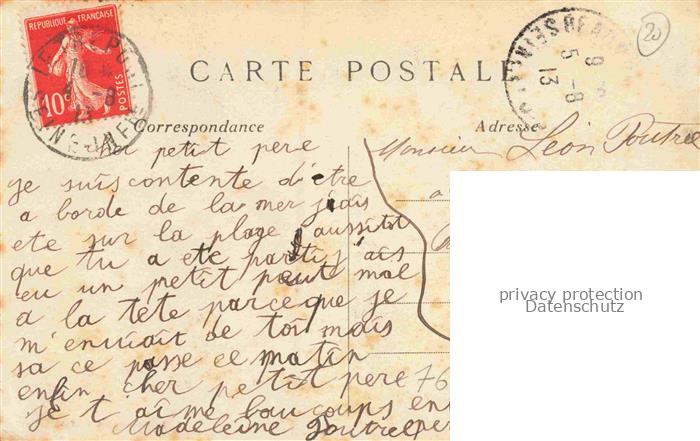 REPUBLIQUE FRANÇAISE
10c POSTES
20
9
5-8
13
CARTE POSTALE
Correspondance
Adresse
cher petit pere
je suis contente d'etre
a borde de la mer j'ais
ete sur la plage aussitot
que tu a ete partis j'ais
eu un petit peute mal
a la tete parceque je
m'enuiait de toi mais
sa ce passe ce matin
enfin cher petit pere
je t'aime baucoups
Madeleine Poutrel
Monsieur Léon Poutrel
76
privacy protection
Datenschutz